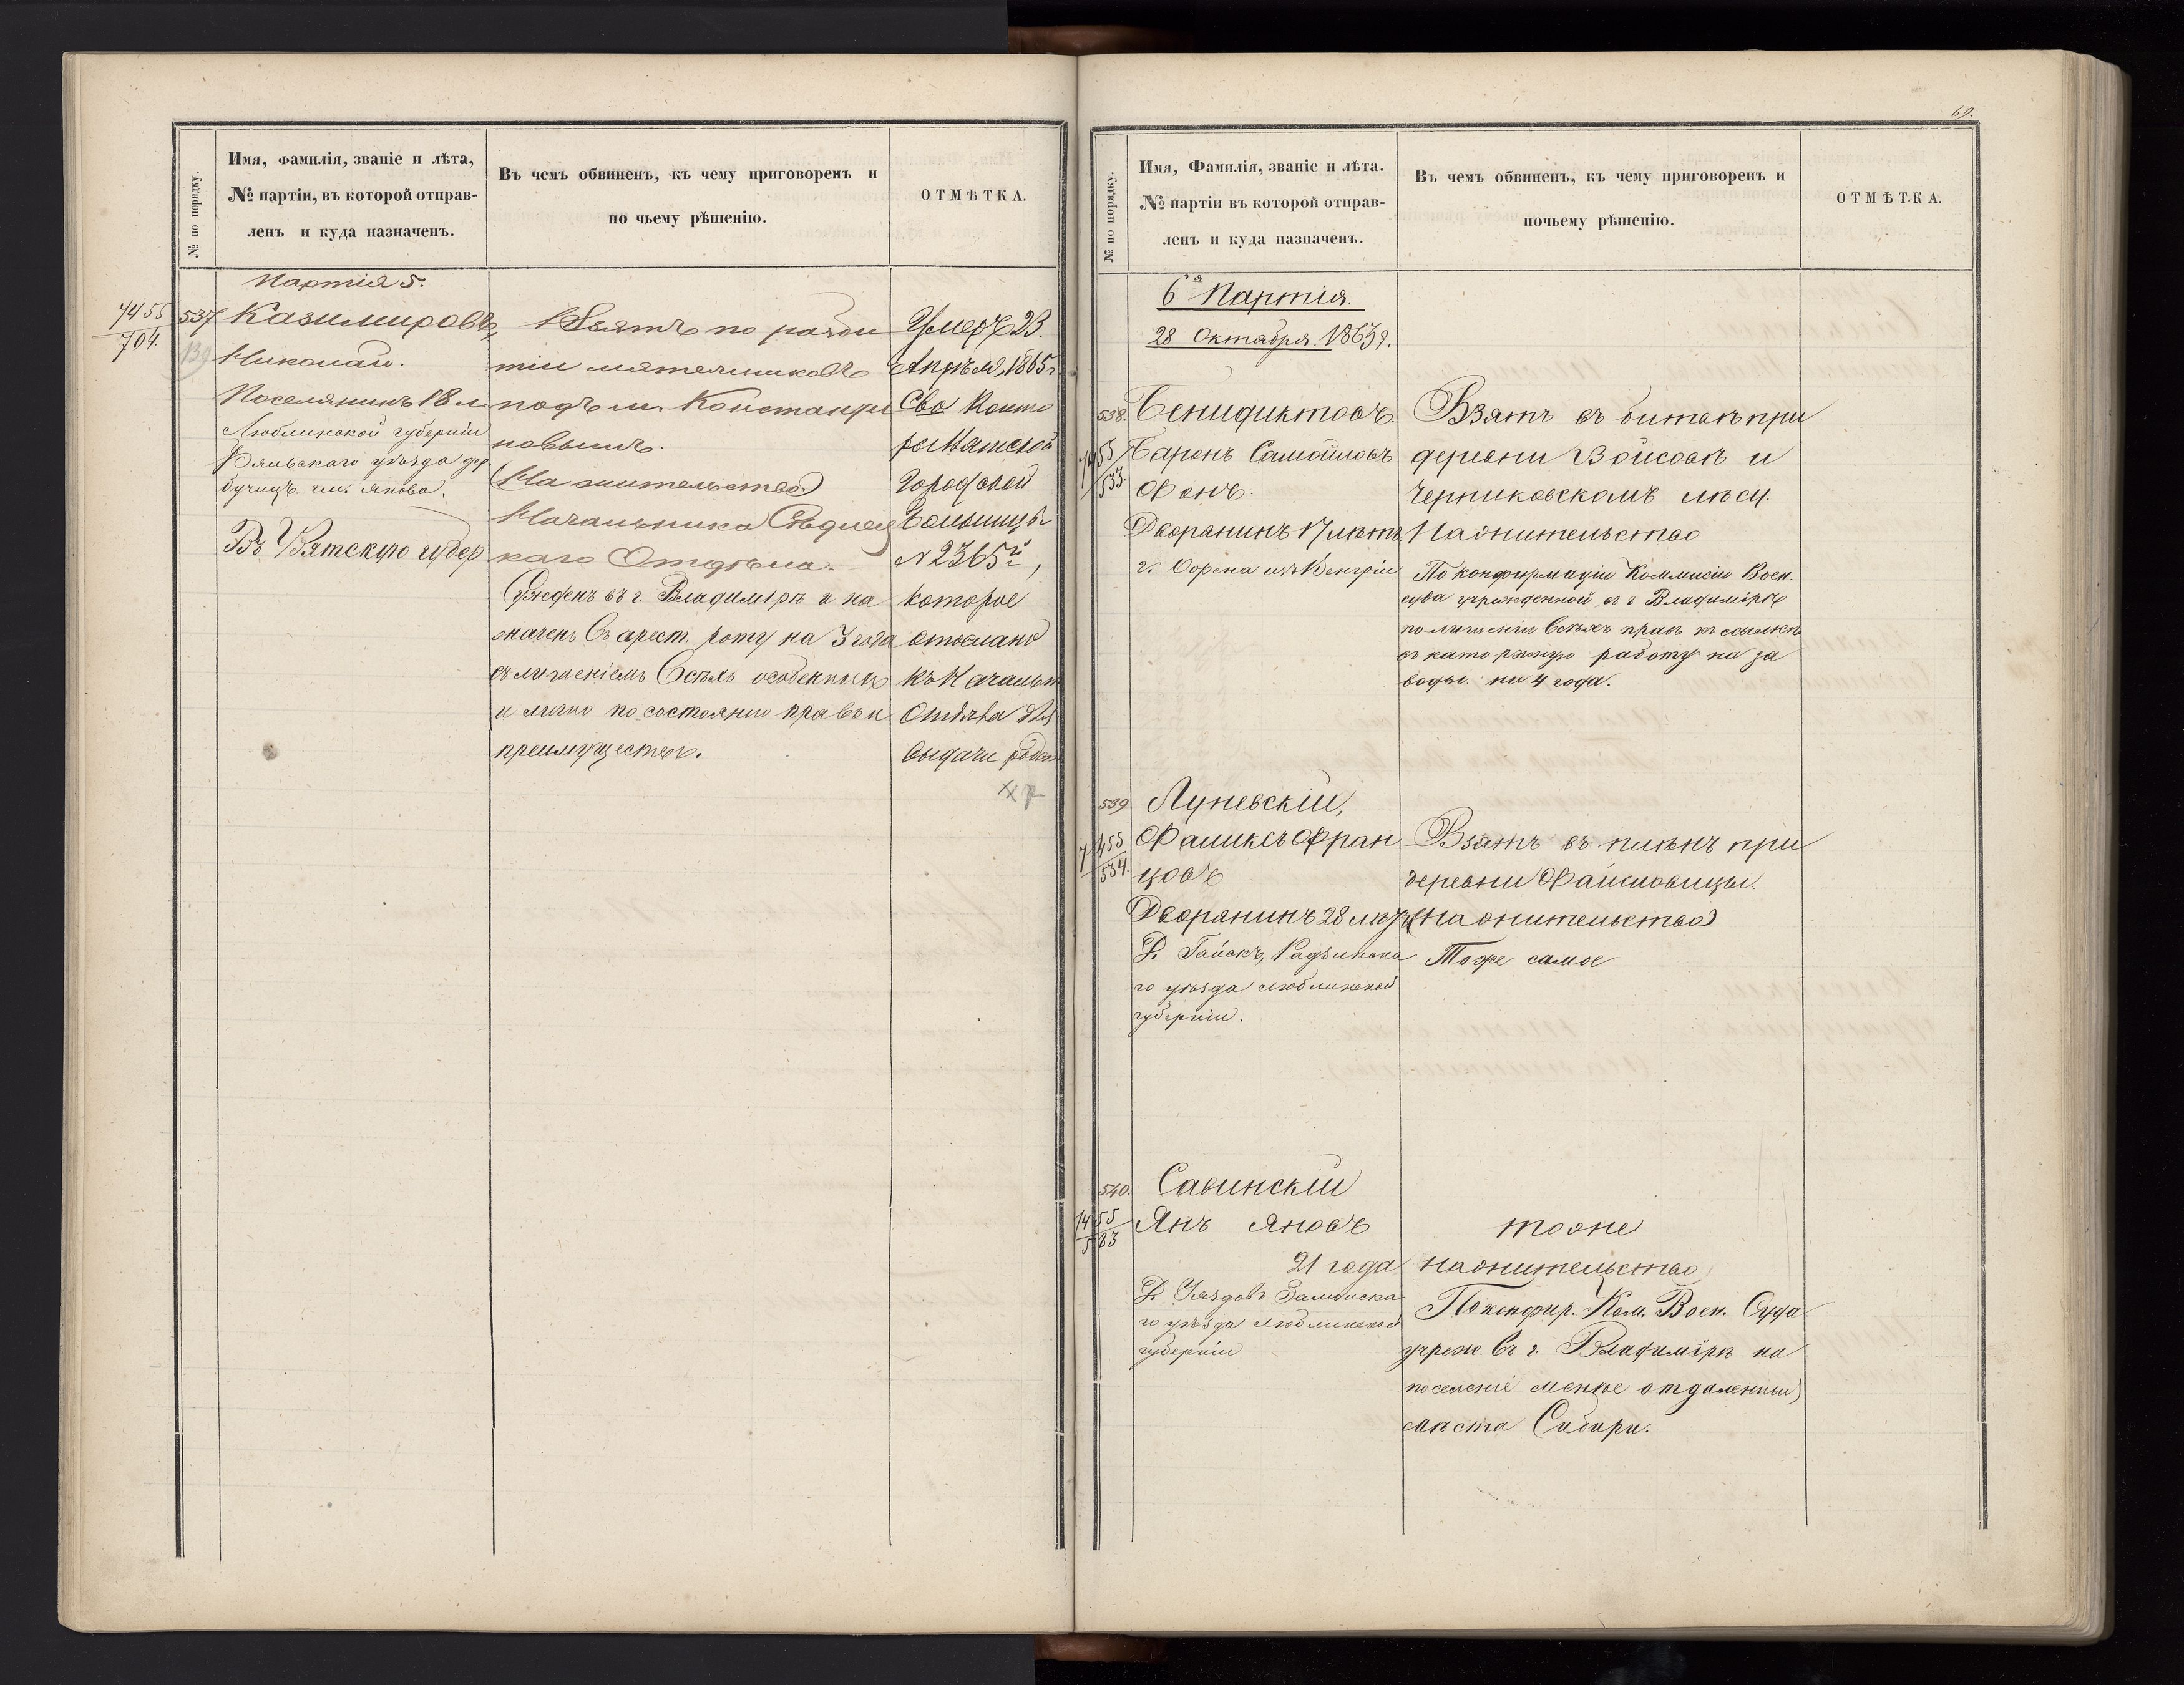 № по порядку.
Имя, фамилія, званіе и лѣта,
№ партіи, въ которой отправ-
ленъ и куда назначенъ.
Въ чемъ обвиненъ, къ чему приговоренъ и
по чьему рѣшенію.
ОТМѢТКА.
Партія 5.
7455
704.
537
139
Казимировъ,
Николай.
Поселянинъ 18 л.
Люблинской губерніи
уѣзда дер.
гм. Янова.
Въ Вятскую губер
Взятъ по разби
тіи мятежниковъ
подъ м. Константи
новымъ.
(На жительство)
Начальника Сѣдлец
каго Отдѣла.
Сужденъ въ г. Владимірѣ и на
значенъ въ арест. роту на 3 года
съ лишеніемъ всѣхъ особенныхъ
и лично по состоянію правъ и
преимуществъ.
Умеръ 23
Апрѣля 1865 г.
Св. Конто
ры Вятской
Городской
Больницы
№ 2365й,
которое
отослано
къ Начальн
Отдѣла для
выдачи родст
69.
№ по порядку.
Имя, Фамилія, званіе и лѣта.
№ партіи въ которой отправ-
ленъ и куда назначенъ.
Въ чемъ обвиненъ, къ чему приговоренъ и
почьему рѣшенію.
ОТМѢТКА.
6я Партія.
28 Октября 1863 г.
538.
7455
533.
Бенидиктовъ.
Баронъ Самойловъ
Фонъ.
Дворянинъ 17 лѣтъ
изъ Венгріи
Взятъ въ битвѣ при
деревни Войсовѣ и
Черниковскомъ лѣсу.
На жительство
По конфирмаціи Коммисіи Воен.
суда учрежденной въ г. Владимірѣ
по лишеніи всѣхъ правъ къ ссылкѣ
въ каторжную работу на за
воды на 4 года.
539
7455
534.
Луневскій,
Феликсъ Фран
цовъ
Дворянинъ 28 лѣтъ
Д. Гайскъ, Радзинска
го уѣзда Люблинской
губерніи.
Взятъ въ плѣнъ при
деревни Файсловицы.
(На жительство)
Тоже самое
540.
7455
583
Савинскій
Янъ Яновъ
21 года
Д. Уяздовъ Замойска
го уѣзда Люблинской
губерніи
тоже
на жительство
По конфир. Ком. Воен. Суда
учреж. въ г. Владимірѣ на
поселеніе менѣе отдаленныя
мѣста Сибири.